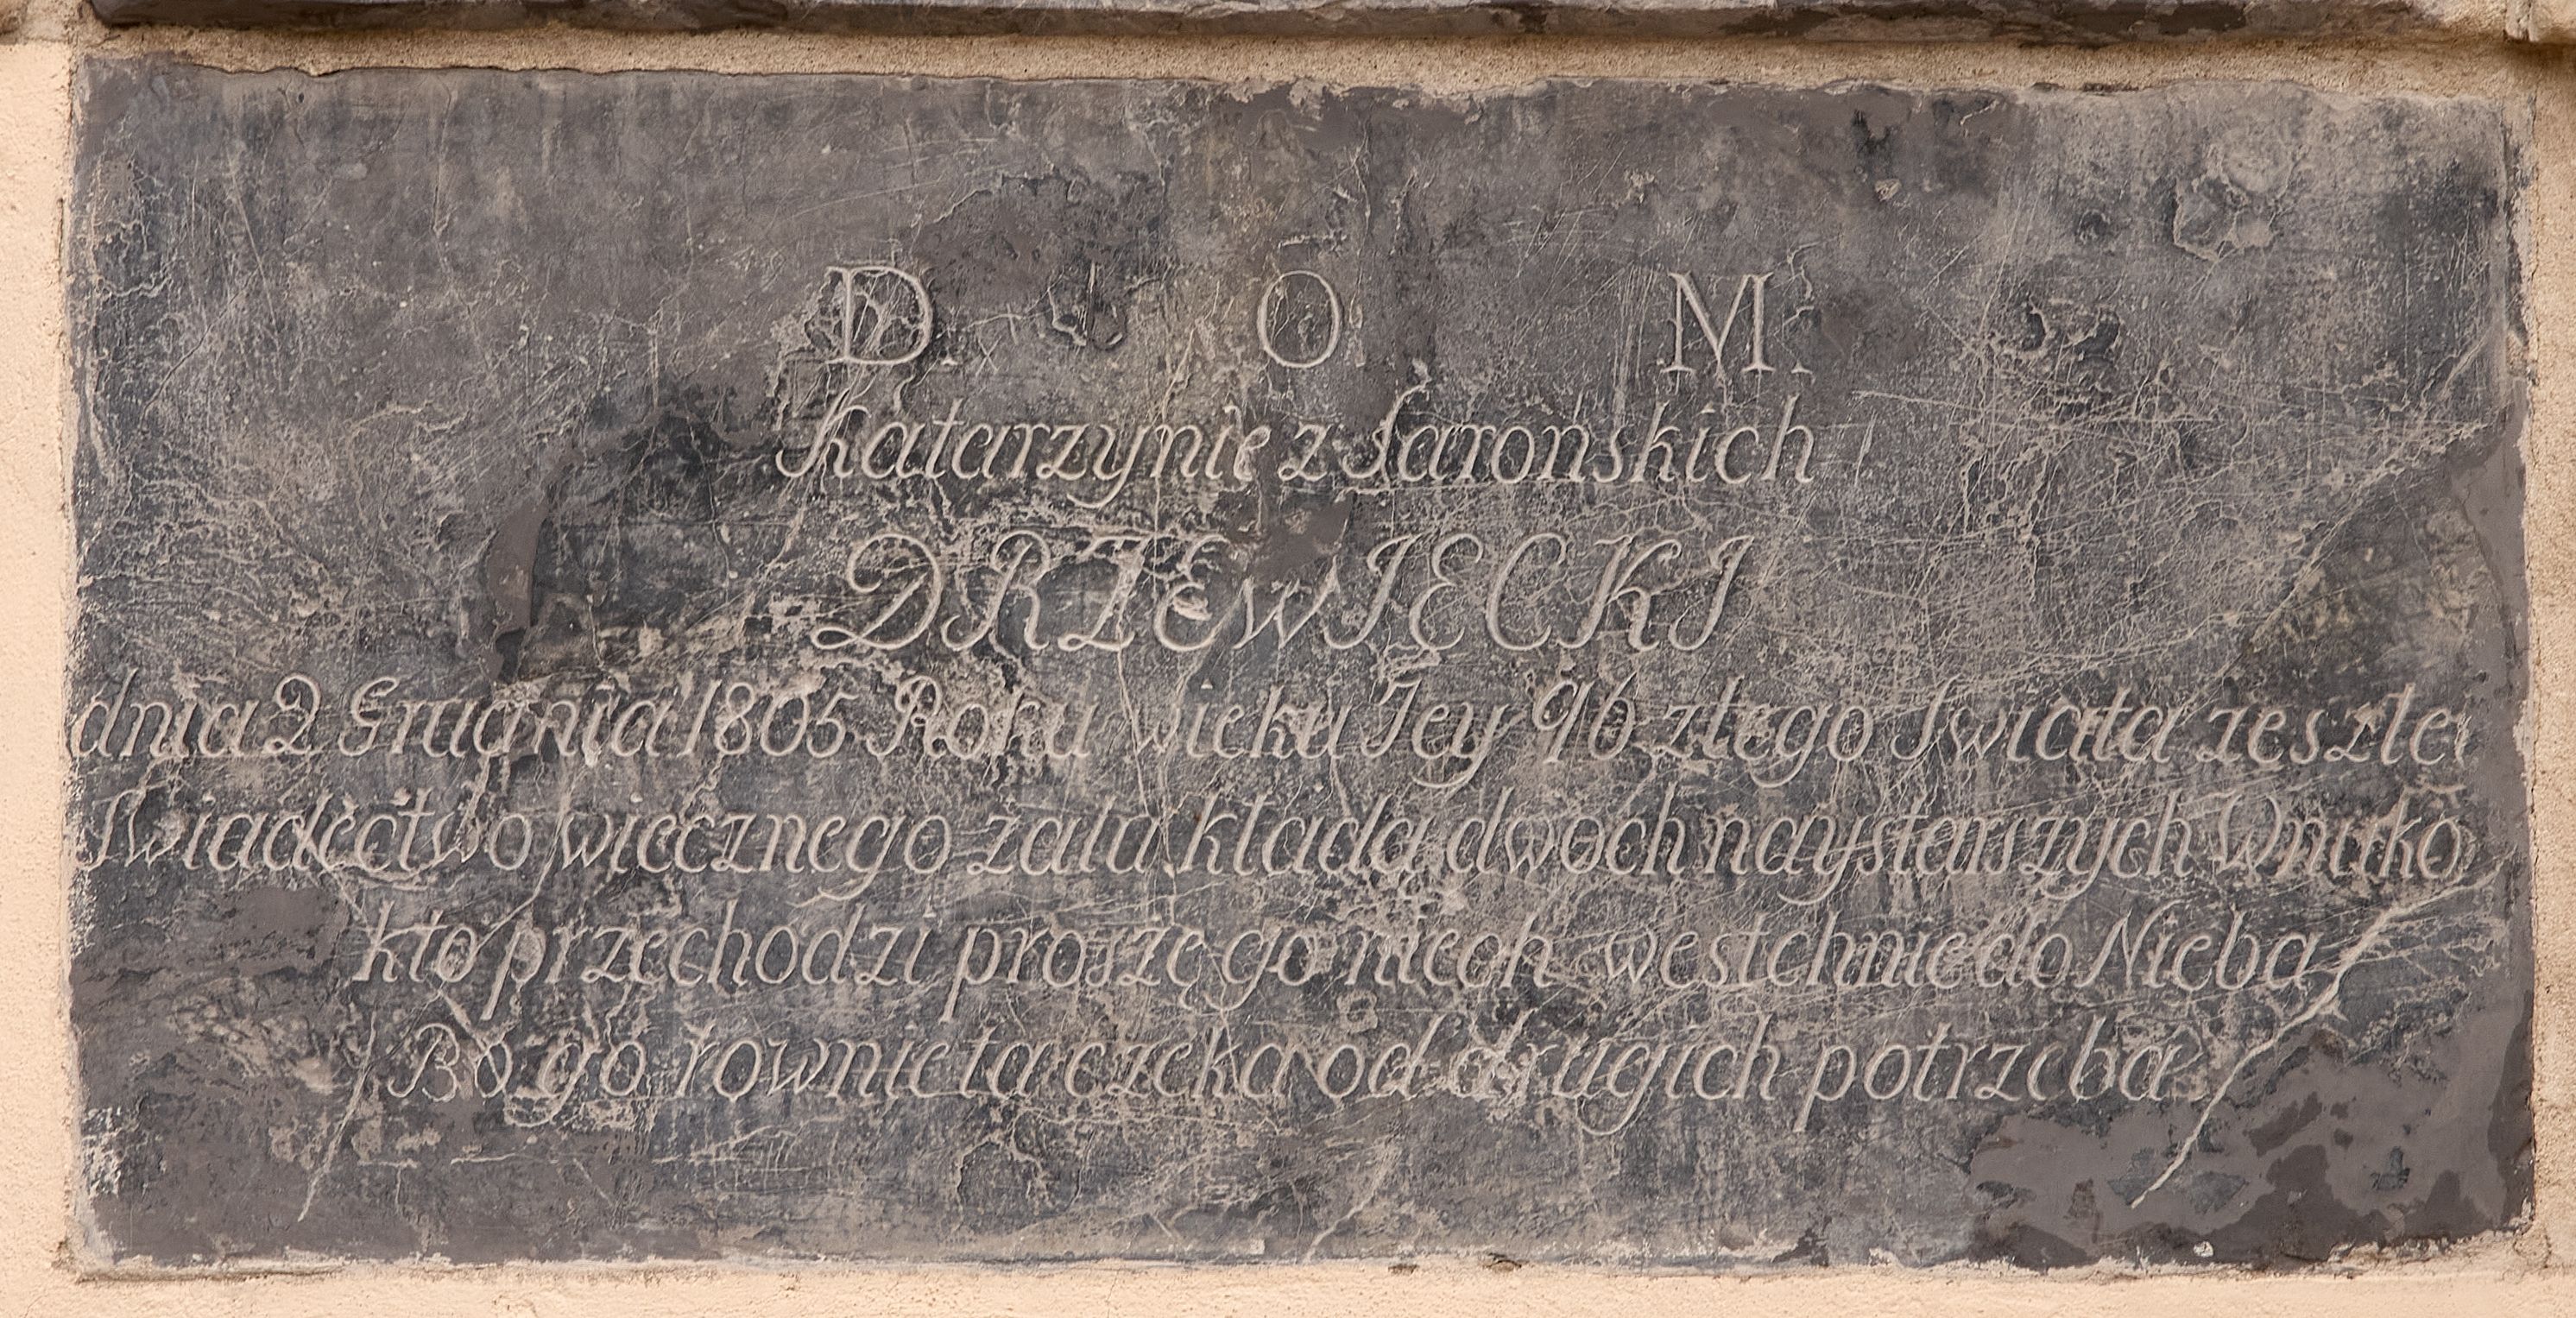 D. O. M.
Katarzynie z Saronskich
DRZEWIECKI
dnia 2 Grudnia 1805 Roku wieku Jey 96 z tego Swiata zeszłei
Swiadectwo wiecznego zalu kłada dwoch naystarszych Wnuko
kto przechodzi proszę go niech westchnie do Nieba
Bo go rownie ta czeka od drugich potrzeba